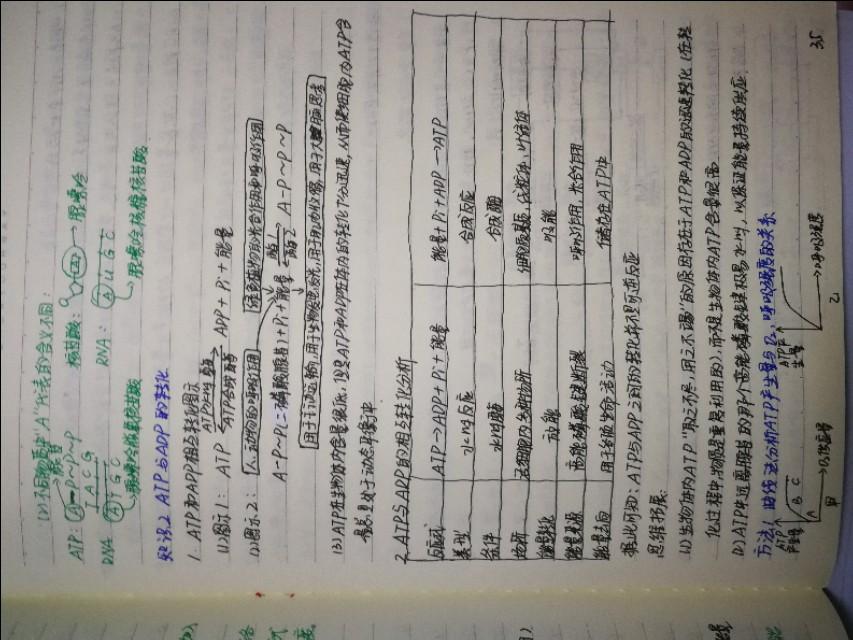 (2)不同物质中"A"代表的含义不同:
ATP: A-P~P~P 腺苷 核苷酸: 腺嘌呤
DNA: A T G C T A C G 腺嘌呤脱氧核苷酸 RNA: A U G C 腺嘌呤核糖核苷酸
知识2 ATP与ADP的转化
1. ATP和ADP相互转化图示
(1)图示1: ATP ATP水解酶 ATP合成酶 ADP + Pi + 能量
(2)图示2: 人、动物的呼吸作用 绿色植物的光合作用和呼吸作用
A-P~P(二磷酸腺苷)+Pi+能量 酶1 酶2 A-P~P~P
用于主动运输,用于生物发光发电,用于肌肉收缩,用于大脑思考
(3)ATP在生物体内含量很低,但是ATP和ADP在体内的转化十分迅速,从而使细胞内ATP含
量总是处于动态平衡中
2. ATP与ADP的相互转化分析
反应式 ATP→ADP+Pi+能量 能量+Pi+ADP→ATP
类型 水解反应 合成反应
条件 水解酶 合成酶
场所 活细胞内多种场所 细胞质基质、线粒体、叶绿体
能量转化 放能 吸能
能量来源 高能磷酸键断裂 呼吸作用、光合作用
能量去向 用于各项生命活动 储存在ATP中
据此可知:ATP与ADP之间的转化并不是可逆反应
思维拓展:
(1)生物体内ATP"取之不尽,用之不竭"的原因存在于ATP和ADP的迅速转化(在转
化过程中,物质是重复利用的),而不是生物体内ATP含量很高
(2)ATP中远离腺苷的那个高能磷酸键极易水解,以保证能量持续供应
方法1 曲线法分析ATP产生量与O₂、呼吸强度的关系
ATP产生量 A B C O₂供应量 甲 ATP产生量 呼吸强度 乙
35